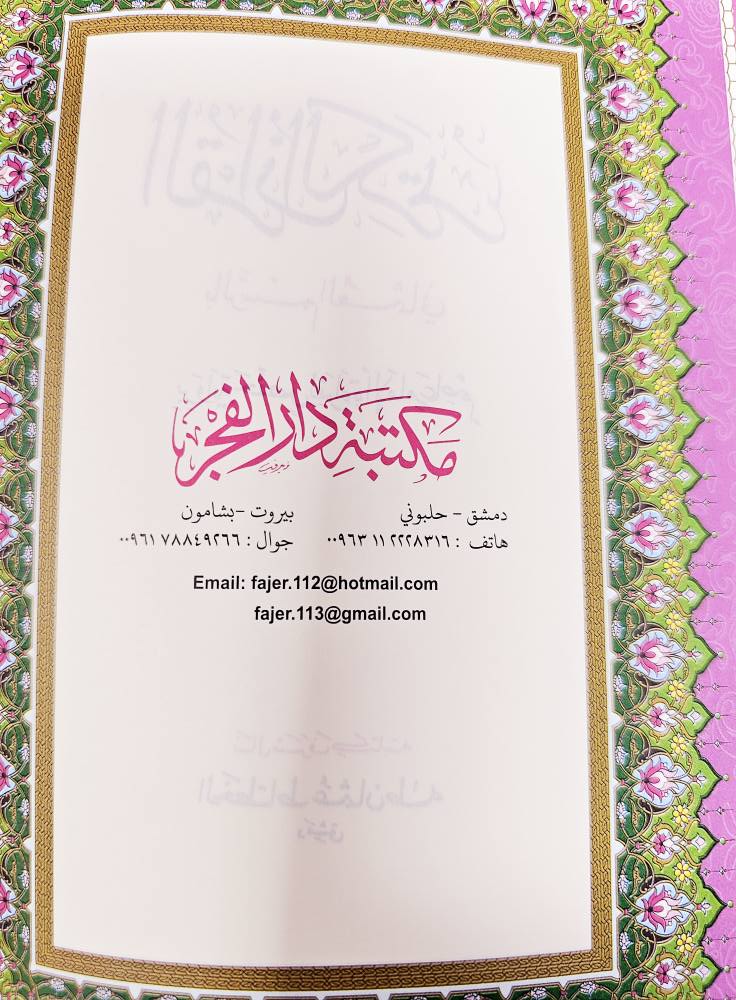 مكتبة دار الفجر
دمشق - حلبوني
هاتف : ٠٠٩٦٣ ١١ ٢٢٢٨٣١٦
بيروت - بشامون
جوال : ٠٠٩٦١ ٧٨٨٤٩٢٦٦
Email: fajer.112@hotmail.com
fajer.113@gmail.com